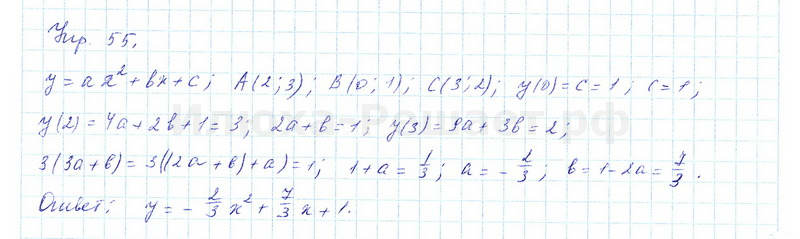 Упр. 55.
y = ax² + bx + c; A(2; 3); B(0; 1); C(3; 2); y(0) = c = 1; c = 1;
y(2) = 4a + 2b + 1 = 3; 2a + b = 1; y(3) = 9a + 3b = 2;
3(3a + b) = 3((2a + b) + a) = 1; 1 + a = 1/3; a = - 2/3; b = 1 - 2a = 7/3.
Ответ: y = - 2/3 x² + 7/3 x + 1.